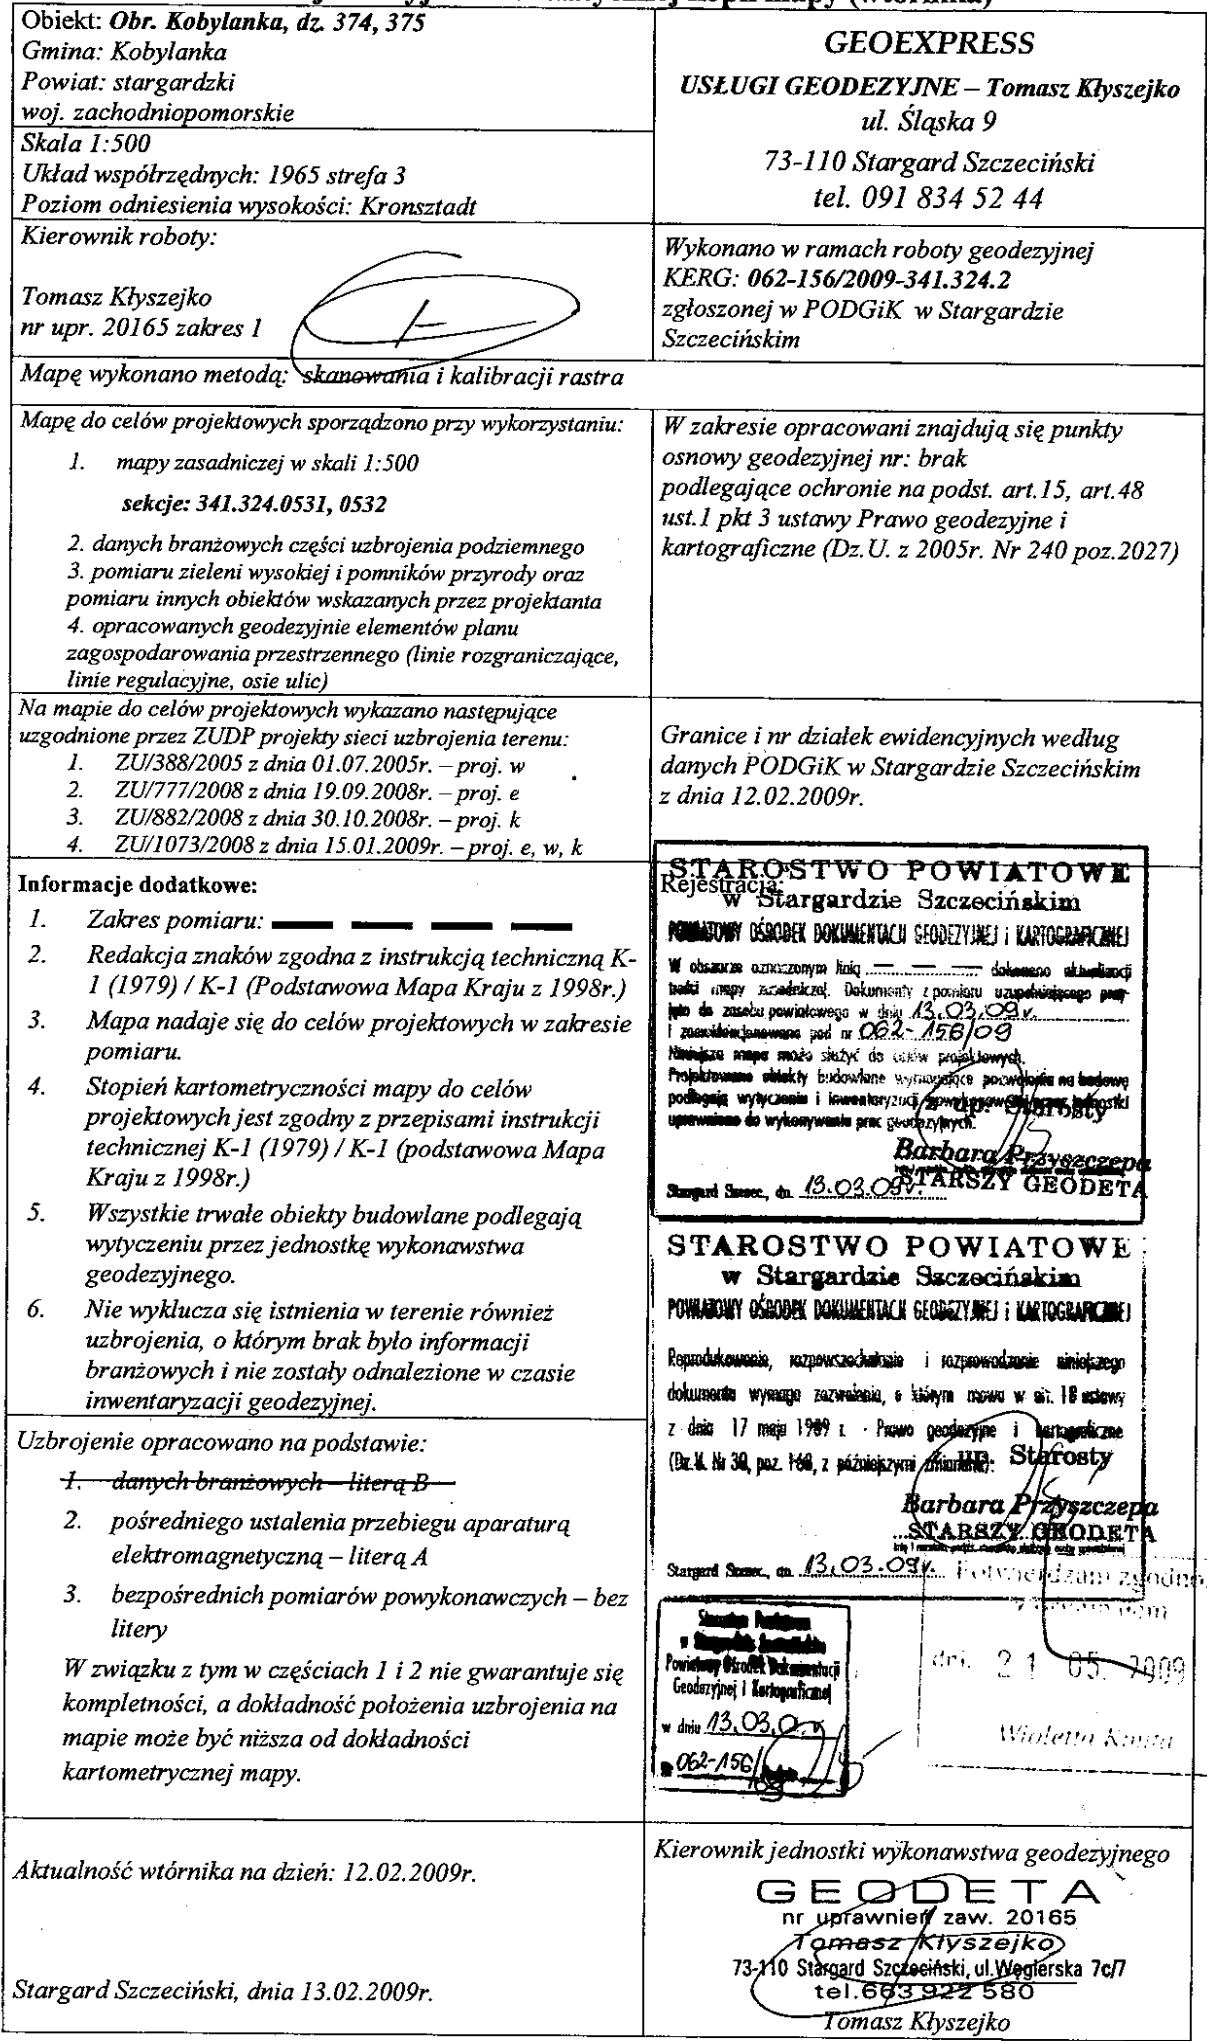 kopii mapy (wtórnika)
Obiekt: Obr. Kobylanka, dz. 374, 375
Gmina: Kobylanka
Powiat: stargardzki
woj. zachodniopomorskie
Skala 1:500
Układ współrzędnych: 1965 strefa 3
Poziom odniesienia wysokości: Kronsztadt
GEOEXPRESS
USŁUGI GEODEZYJNE – Tomasz Kłyszejko
ul. Śląska 9
73-110 Stargard Szczeciński
tel. 091 834 52 44
Kierownik roboty:
Tomasz Kłyszejko
nr upr. 20165 zakres 1
Wykonano w ramach roboty geodezyjnej
KERG: 062-156/2009-341.324.2
zgłoszonej w PODGiK w Stargardzie
Szczecińskim
Mapę wykonano metodą: skanowania i kalibracji rastra
Mapę do celów projektowych sporządzono przy wykorzystaniu:
1. mapy zasadniczej w skali 1:500
sekcje: 341.324.0531, 0532
2. danych branżowych części uzbrojenia podziemnego
3. pomiaru zieleni wysokiej i pomników przyrody oraz
pomiaru innych obiektów wskazanych przez projektanta
4. opracowanych geodezyjnie elementów planu
zagospodarowania przestrzennego (linie rozgraniczające,
linie regulacyjne, osie ulic)
W zakresie opracowani znajdują się punkty
osnowy geodezyjnej nr: brak
podlegające ochronie na podst. art.15, art.48
ust.1 pkt 3 ustawy Prawo geodezyjne i
kartograficzne (Dz.U. z 2005r. Nr 240 poz.2027)
Na mapie do celów projektowych wykazano następujące
uzgodnione przez ZUDP projekty sieci uzbrojenia terenu:
1. ZU/388/2005 z dnia 01.07.2005r. – proj. w
2. ZU/777/2008 z dnia 19.09.2008r. – proj. e
3. ZU/882/2008 z dnia 30.10.2008r. – proj. k
4. ZU/1073/2008 z dnia 15.01.2009r. – proj. e, w, k
Granice i nr działek ewidencyjnych według
danych PODGiK w Stargardzie Szczecińskim
z dnia 12.02.2009r.
Informacje dodatkowe:
1. Zakres pomiaru:
2. Redakcja znaków zgodna z instrukcją techniczną K-
1 (1979) / K-1 (Podstawowa Mapa Kraju z 1998r.)
3. Mapa nadaje się do celów projektowych w zakresie
pomiaru.
4. Stopień kartometryczności mapy do celów
projektowych jest zgodny z przepisami instrukcji
technicznej K-1 (1979) / K-1 (podstawowa Mapa
Kraju z 1998r.)
5. Wszystkie trwałe obiekty budowlane podlegają
wytyczeniu przez jednostkę wykonawstwa
geodezyjnego.
6. Nie wyklucza się istnienia w terenie również
uzbrojenia, o którym brak było informacji
branżowych i nie zostały odnalezione w czasie
inwentaryzacji geodezyjnej.
Rejestracja:
STAROSTWO POWIATOWE
w Stargardzie Szczecińskim
POWIATOWY OŚRODEK DOKUMENTACJI GEODEZYJNEJ i KARTOGRAFICZNEJ
W obszarze oznaczonym linią dokonano aktualizacji
treści mapy zasadniczej. Dokumenty z pomiaru uzupełniającego przy-
jęto do zasobu powiatowego w dniu 13.03.09r.
i zaewidencjonowano pod nr 062-156/09
Niniejsza mapa może służyć do celów projektowych.
Projektowane obiekty budowlane wymagające pozwolenia na budowę
podlegają wytyczeniu i inwentaryzacji powykonawczej przez jednostki
uprawnione do wykonywania prac geodezyjnych.
z up. Starosty
Barbara Przyszczepa
STARSZY GEODETA
Stargard Szczec., dn. 13.03.09r.
STAROSTWO POWIATOWE
w Stargardzie Szczecińskim
POWIATOWY OŚRODEK DOKUMENTACJI GEODEZYJNEJ i KARTOGRAFICZNEJ
Reprodukowanie, rozpowszechnianie i rozprowadzanie niniejszego
dokumentu wymaga zezwolenia, o którym mowa w art. 18 ustawy
z dnia 17 maja 1989 r. - Prawo geodezyjne i kartograficzne
(Dz.U. Nr 30, poz. 163, z późniejszymi zmianami).
up. Starosty
Barbara Przyszczepa
STARSZY GEODETA
Stargard Szczec., dn. 13.03.09r.
Potwierdzam zgodno
dn. 21 05. 2009
Wioletta
Starostwo Powiatowe
w Stargardzie Szczecińskim
Powiatowy Ośrodek Dokumentacji
Geodezyjnej i Kartograficznej
w dniu 13.03.0
062-156/09
Uzbrojenie opracowano na podstawie:
1. danych branżowych – literą B
2. pośredniego ustalenia przebiegu aparaturą
elektromagnetyczną – literą A
3. bezpośrednich pomiarów powykonawczych – bez
litery
W związku z tym w częściach 1 i 2 nie gwarantuje się
kompletności, a dokładność położenia uzbrojenia na
mapie może być niższa od dokładności
kartometrycznej mapy.
Aktualność wtórnika na dzień: 12.02.2009r.
Stargard Szczeciński, dnia 13.02.2009r.
Kierownik jednostki wykonawstwa geodezyjnego
GEODETA
nr uprawnień zaw. 20165
Tomasz Kłyszejko
73-110 Stargard Szczeciński, ul.Węgierska 7c/7
tel.663 922 580
Tomasz Kłyszejko